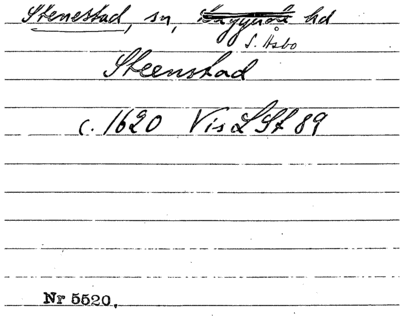 Stenestad, sn, hd
S. Åsbo
Steenstad
c. 1620 Vis LSt 89
Nr 5520.